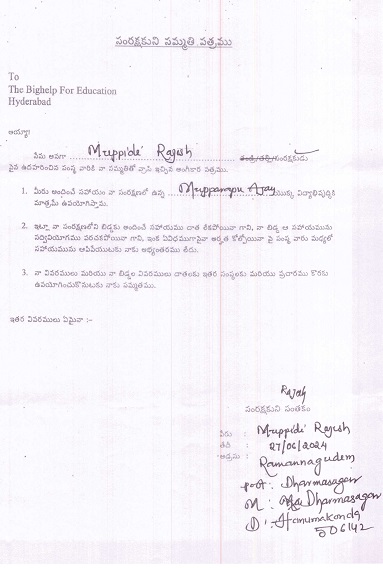 సంరక్షకుని సమ్మతి పత్రము
To
The Bighelp For Education
Hyderabad
అయ్యా!
నేను అనగా Muppidi Rajesh తండ్రి/తల్లి/సంరక్షకుడు
పైన ఉదహరించిన సంస్థ వారికి నా సమ్మతితో వ్రాసి ఇచ్చిన అంగీకార పత్రము.
1. మీరు అందించే సహాయం నా సంరక్షణలో ఉన్న Mupparapu Ajay యొక్క విద్యాభివృద్ధికి
మాత్రమే ఉపయోగిస్తాను.
2. ఇట్లా నా సంరక్షణలోని బిడ్డకు అందించే సహాయము దాత లేకపోయినా గాని, నా బిడ్డ ఆ సహాయమును
సద్వినియోగము పరచకపోయినా గాని, ఇంక ఏవిధముగానైనా అర్హత కోల్పోయినా పై సంస్థ వారు మధ్యలో
సహాయమును ఆపివేయుటకు నాకు అభ్యంతరము లేదు.
3. నా వివరములు మరియు నా బిడ్డల వివరములు దాతలకు ఇతర సంస్థలకు మరియు ప్రచారము కొరకు
ఉపయోగించుకొనుటకు నాకు సమ్మతము.
ఇతర వివరములు ఏమైనా :-
Rajesh
సంరక్షకుని సంతకం
పేరు : Muppidi Rajesh
తేది : 27/06/2024
అడ్రసు : Ramannagudem
post: Dharmasagar
M: Dharmasagar
D: Hanumakonda
506142